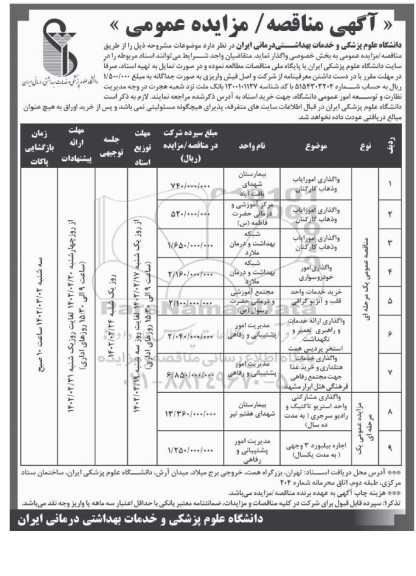 « آگهی مناقصه/ مزایده عمومی »
دانشگاه علوم پزشکی و خدمات بهداشتی‌درمانی ایران
دانشگاه علوم پزشکی و خدمات بهداشتی‌درمانی ایران در نظر دارد موضوعات مشروحه ذیل را از طریق
مناقصه/مزایده عمومی به بخش خصوصی واگذار نماید. متقاضیان واجد شرایط می‌توانند اسناد مربوطه را در
سایت دانشگاه علوم پزشکی ایران یا پایگاه ملی مناقصات مطالعه نموده و در صورت تمایل به تهیه اسناد، صرفاً
در مهلت مقرر با در دست داشتن معرفینامه از شرکت و اصل فیش واریزی به صورت جداگانه به مبلغ ۱/۵۰۰/۰۰۰
ریال به حساب شماره ۵۱۵۴۳۰۳۳۰۴ با کد شناسه ۱۳۰۰۱۰۱۱۳۷ بانک ملت نزد شعبه هجرت در وجه مدیریت
نظارت و توسعه امور عمومی دانشگاه، جهت خرید اسناد به آدرس ذکر شده مراجعه نمایند. لازم به ذکر است
دانشگاه علوم پزشکی ایران در قبال اطلاعات سایت های متفرقه، پذیرای هیچگونه مسئولیتی نمی باشد و پس از خرید اوراق به هیچ عنوان
مبالغ دریافتی عودت داده نخواهد شد.
ردیف نوع موضوع نام واحد مبلغ سپرده شرکت در مناقصه/ مزایده (ریال) مهلت توزیع اسناد جلسه توجیهی مهلت ارائه پیشنهادات زمان بازگشایی پاکات
۱ واگذاری امورایاب وذهاب کارکنان بیمارستان شهدای یافت آباد ۷۴۰/۰۰۰/۰۰۰
۲ واگذاری امورایاب وذهاب کارکنان مرکز آموزشی و درمانی حضرت فاطمه (س) ۵۲۰/۰۰۰/۰۰۰
۳ واگذاری امورایاب وذهاب کارکنان شبکه بهداشت و درمان ملارد ۱/۶۵۰/۰۰۰/۰۰۰
۴ واگذاری امور خودروسواری شبکه بهداشت و درمان ملارد ۲/۱۶۰/۰۰۰/۰۰۰
۵ خرید خدمات واحد قلب و آنژیو گرافی مجتمع آموزشی و درمانی حضرت رسول (ص) ۲/۱۰۰/۰۰۰/۰۰۰
۶ واگذاری ارائه خدمات و راهبری تعمیر و نگهداشت استخر پردیس همت مدیریت امور پشتیبانی و رفاهی ۲/۰۴۰/۰۰۰/۰۰۰
۷ واگذاری خدمات هتلداری و خرید غذا جهت مجتمع رفاهی فرهنگی هتل ابرار مشهد مدیریت امور پشتیبانی و رفاهی ۶/۸۵۰/۰۰۰/۰۰۰
۸ واگذاری مشارکتی واحد استریو تاکتیک و رادیو سرجری ( به مدت ده سال) بیمارستان شهدای هفتم تیر ۱۳/۳۶۰/۰۰۰/۰۰۰
۹ اجاره بیلبورد ۳ وجهی ( به مدت یکسال) مدیریت امور پشتیبانی و رفاهی ۱/۲۵۰/۰۰۰/۰۰۰
مناقصه عمومی یک مرحله ای
مزایده عمومی یک مرحله ای
سه شنبه ۱۴۰۲/۰۳/۰۲ ساعت ۱۰ صبح
** آدرس محل دریافت اسناد: تهران، بزرگراه همت، خروجی برج میلاد، میدان آرش، دانشگاه علوم پزشکی ایران، ساختمان ستاد
مرکزی، طبقه دوم، اتاق محرمانه شماره ۲۰۴
** هزینه چاپ آگهی به عهده برنده مناقصه/مزایده می‌باشد.
تذکر۱: سپرده قابل قبول برای شرکت در کلیه مناقصات و مزایدات، ضمانتنامه معتبر بانکی با حداقل اعتبار سه ماهه یا واریز وجه نقد می‌باشد.
دانشگاه علوم پزشکی و خدمات بهداشتی درمانی ایران